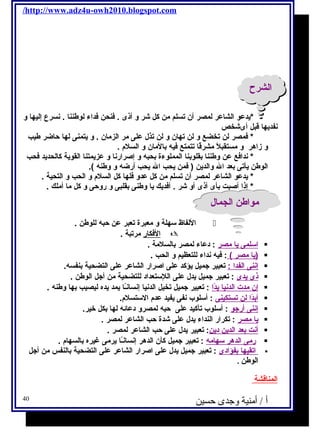 /http://www.adz4u-owh2010.blogspot.com
الشرح
*يدعو الشاعر لمصر أن تسلم من كل شر و أذى . فنحن فداء لوطننا . نسرع إليها و
نفديها قبل أى شخص
* فمصر لن تخضع و لن تهان و لن تذل على مر الزمان . و يتمنى لها حاضر طيب
و زاهر و مستقبلاً مشرقا تتمتع فيه بالأمان و السلام .
* ندافع عن وطننا بقلوبنا المملوءة بحبه و إصرارنا و عزيمتنا القوية كالحديد فحب
الوطن يأتى بعد الله والدين ( فمن يحب الله يحب أرضه و وطنه ).
* يدعو الشاعر لمصر أن تسلم من كل عدو فلها كل السلام و الحب و التحية .
* إذا أصبت بأى أذى أو شر . أفديك يا وطنى بقلبى و روحى و كل ما أملك .
مواطن الجمال
الألفاظ سهلة و معبرة تعبر عن حبه للوطن .
الأفكار مرتبة .
اسلمى يا مصر : دعاء لمصر بالسلامة .
( يا مصر ) : فيه نداء للتعظيم و الحب .
إننى الفدا : تعبير جميل يؤكد على اصرار الشاعر على التضحية بنفسه.
ذى يدى : تعبير جميل يدل على الاستعداد للتضحية من أجل الوطن .
إن مدت الدنيا يدًا : تعبير جميل تخيل الدنيا إنساناً يمد يده ليصيب بها وطنه .
أبدًا لن تستكينى : أسلوب نفى يفيد عدم الاستسلام.
إننى أرجو : أسلوب تأكيد على حبه لمصرو دعائه لها بكل خير.
يا مصر : تكرار النداء يدل على شدة حب الشاعر لمصر .
أنت بعد الدين دين: تعبير يدل على حب الشاعر لمصر .
رمى الدهر سهامه : تعبير جميل كأن الدهر إنساناً يرمى غيره بالسهام .
اتقيها بفؤادى : تعبير جميل يدل على اصرار الشاعر على التضحية بالنفس من أجل
الوطن .
المناقشة
أ / أمنية وجدى حسين
40